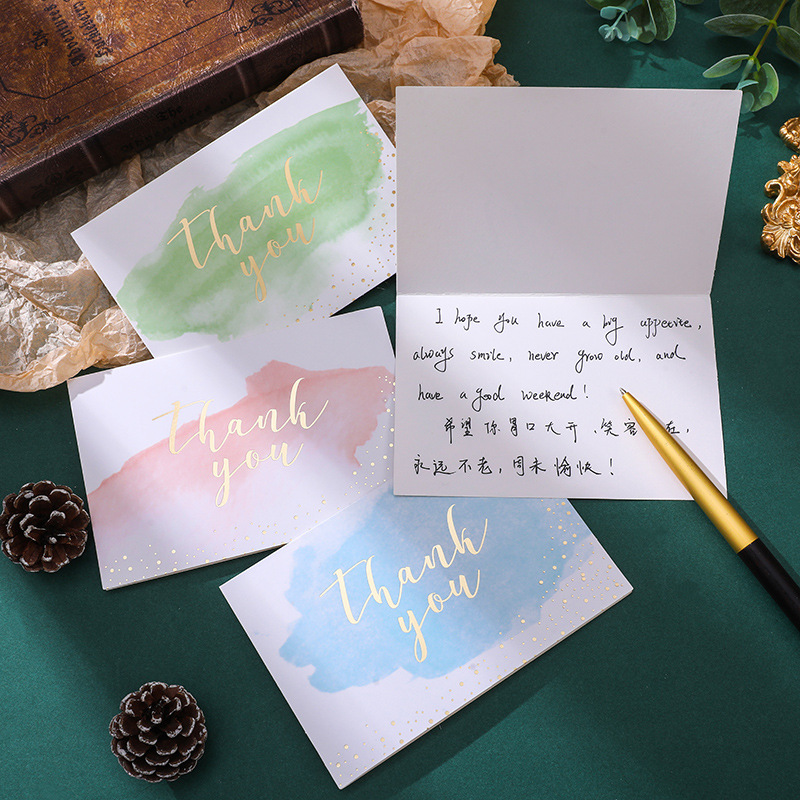 thank
you
thank
you
thank
you
I hope you have a big appetite,
always smile, never grow old, and
have a good weekend!
希望你胃口大开、笑容在,
永远不老,周末愉快!